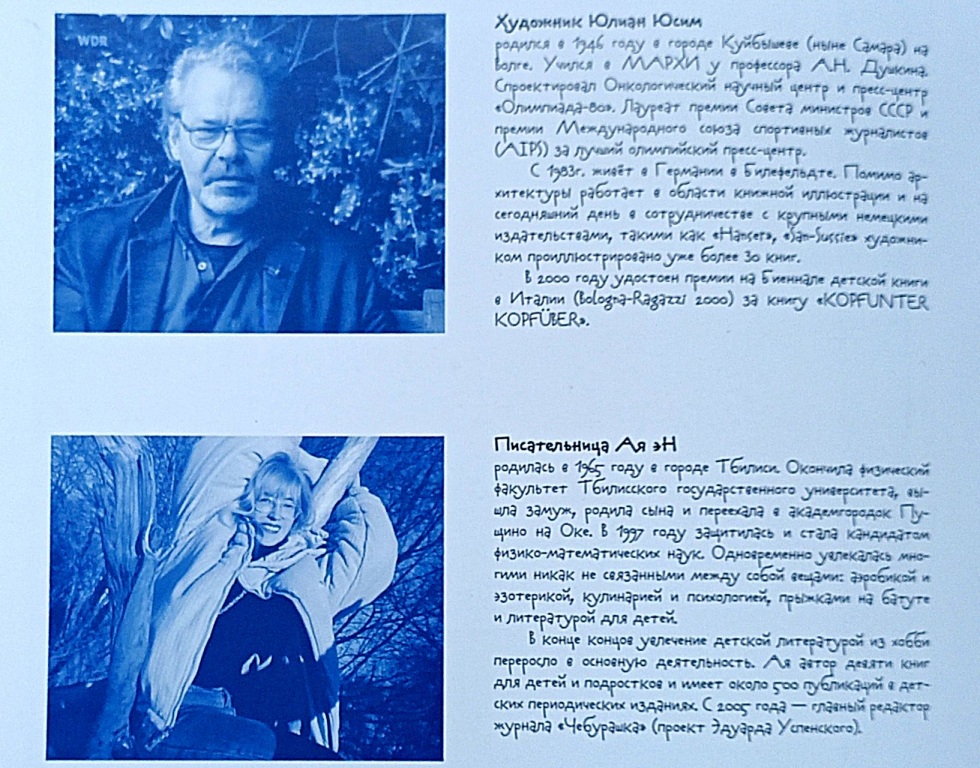 WDR
Художник Юлиан Юсим
родился в 1946 году в городе Куйбышеве (ныне Самара) на
Волге. Учился в МАРХИ у профессора А.Н. Душкина.
Спроектировал Онкологический научный центр и пресс-центр
«Олимпиада-80». Лауреат премии Совета министров СССР и
премии Международного союза спортивных журналистов
(AIPS) за лучший олимпийский пресс-центр.
С 1983г. живёт в Германии в Билефельдте. Помимо ар-
хитектуры работает в области книжной иллюстрации и на
сегодняшний день в сотрудничестве с крупными немецкими
издательствами, такими как «Hanser», «San-Sussie» художни-
ком проиллюстрировано уже более 30 книг.
В 2000 году удостоен премии на Биеннале детской книги
в Италии (Bologna-Ragazzi 2000) за книгу «KOPFUNTER
KOPFÜBER».
Писательница Ая эН
родилась в 1965 году в городе Тбилиси. Окончила физический
факультет Тбилисского государственного университета, вы-
шла замуж, родила сына и переехала в академгородок Пу-
щино на Оке. В 1997 году защитилась и стала кандидатом
физико-математических наук. Одновременно увлекалась мно-
гими никак не связанными между собой вещами: аэробикой и
эзотерикой, кулинарией и психологией, прыжками на батуте
и литературой для детей.
В конце концов увлечение детской литературой из хобби
переросло в основную деятельность. Ая автор девяти книг
для детей и подростков и имеет около 500 публикаций в дет-
ских периодических изданиях. С 2005 года — главный редактор
журнала «Чебурашка» (проект Эдуарда Успенского).